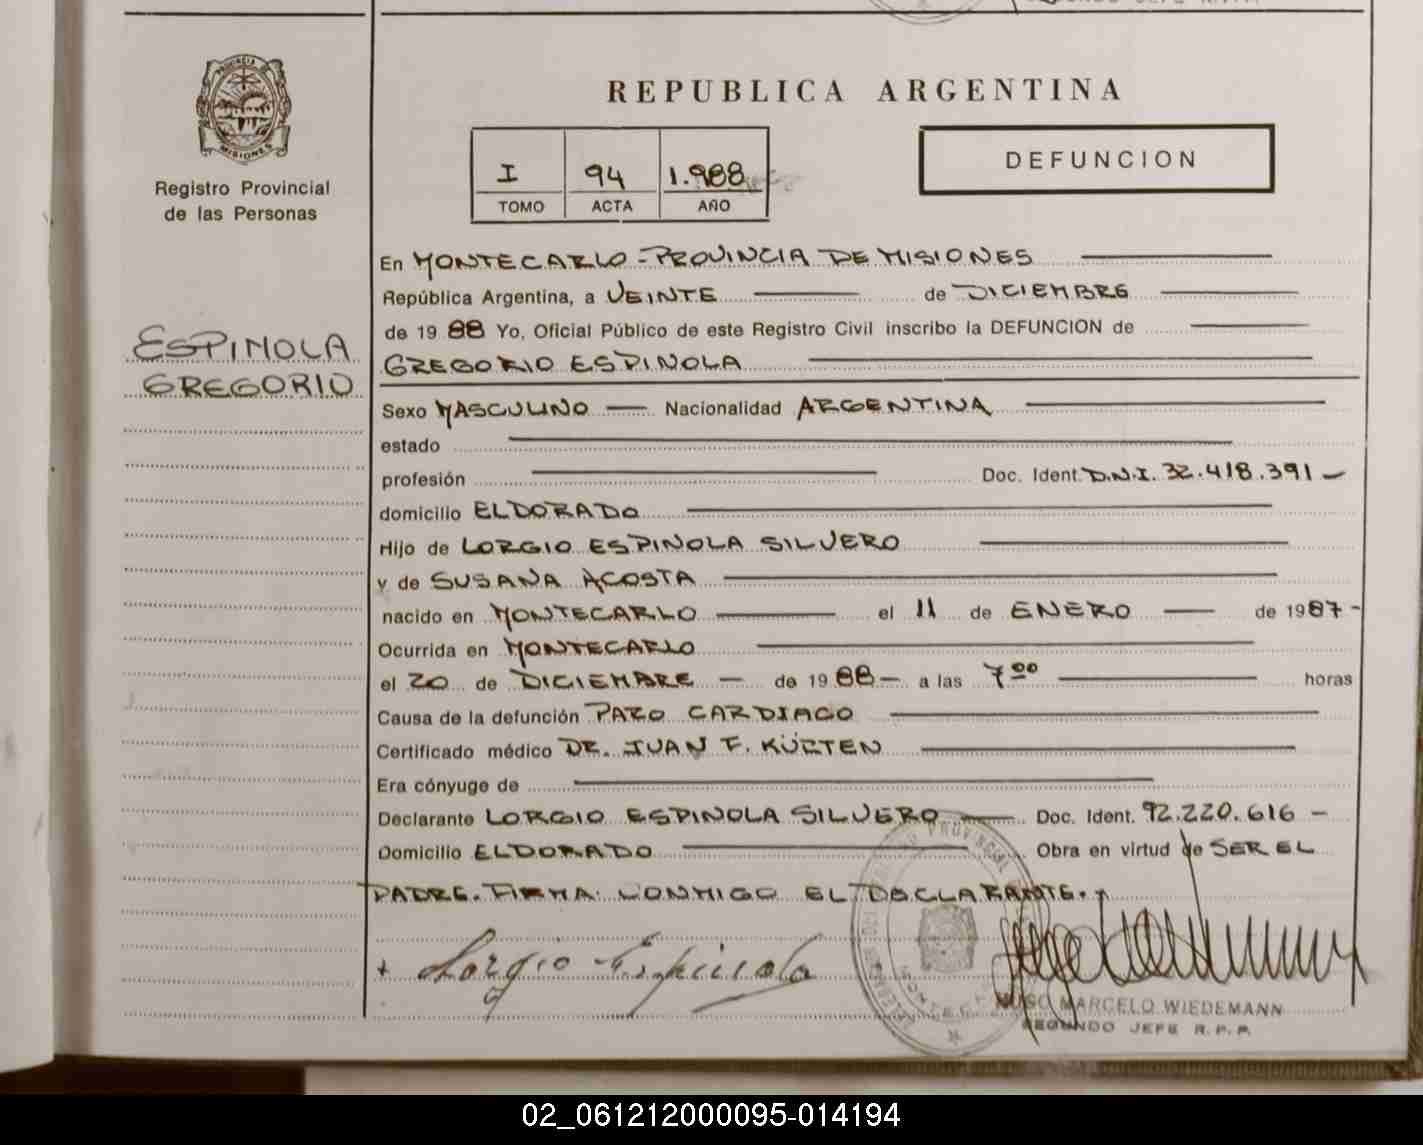 PROVINCIA
MISIONES
Registro Provincial
de las Personas
REPUBLICA ARGENTINA
I 94 1.988
TOMO ACTA AÑO
DEFUNCION
ESPINOLA
GREGORIO
En MONTECARLO - PROVINCIA DE MISIONES
República Argentina, a VEINTE de DICIEMBRE
de 19 88 Yo, Oficial Público de este Registro Civil inscribo la DEFUNCION de
GREGORIO ESPINOLA
Sexo MASCULINO Nacionalidad ARGENTINA
estado
profesión Doc. Ident. D.N.I. 32.418.391 -
domicilio ELDORADO
Hijo de LORGIO ESPINOLA SILVERO
y de SUSANA ACOSTA
nacido en MONTECARLO el 11 de ENERO de 1987 -
Ocurrida en MONTECARLO
el 20 de DICIEMBRE - de 19 88 - a las 7 00 horas
Causa de la defunción PARO CARDIACO
Certificado médico DR. JUAN F. KÜRTEN
Era cónyuge de
Declarante LORGIO ESPINOLA SILVERO Doc. Ident. 92.220.616 -
Domicilio ELDORADO Obra en virtud de SER EL
PADRE. FIRMA CONMIGO EL DECLARANTE.
Lorgio Espinola
HUGO MARCELO WIEDEMANN
SEGUNDO JEFE R.P.P.
02_061212000095-014194